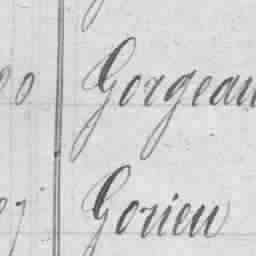 00 Gorgeau
07 Gorieu